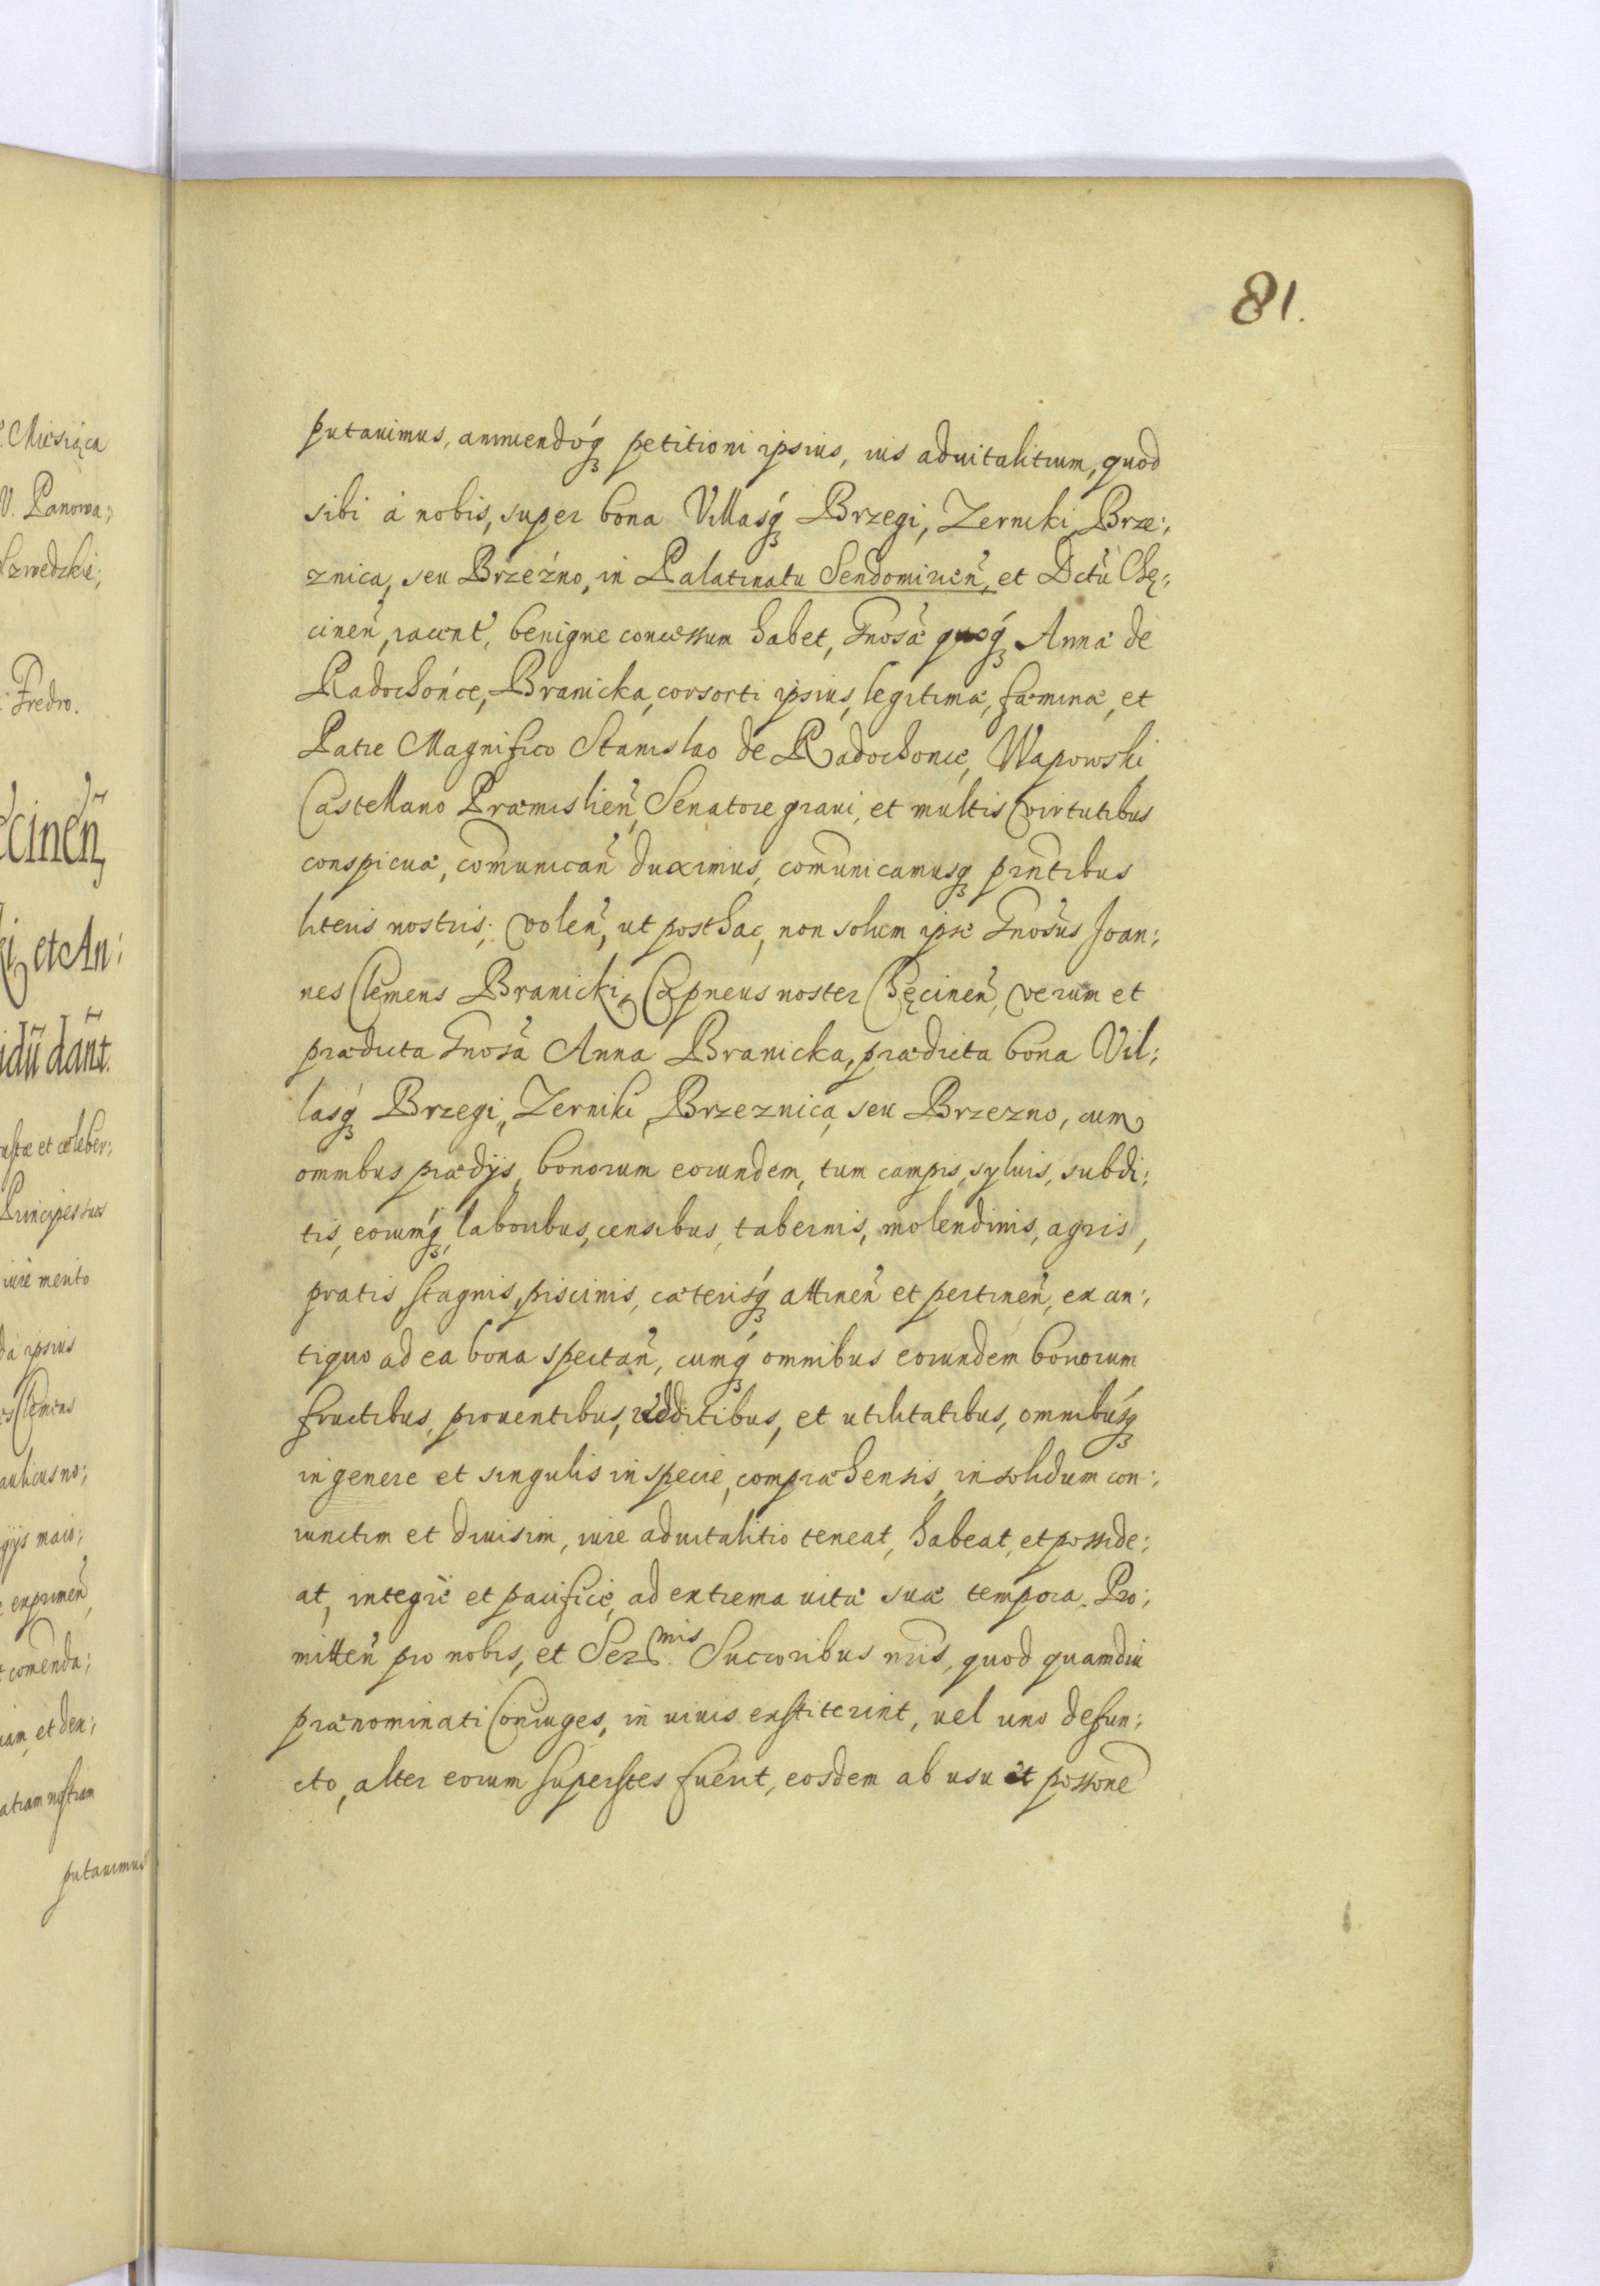 81.
putauimus, annuendoq́ petitioni ipsius, ius aduitalitium, quod
sibi à nobis, super bona Villasq́ Brzegi, Zerniki Brze:
znica, seu Brzeźno, in Palatinatu Sendomirień, et Dctũ Chę:
cineń, iacent, benigne concessum habet, Gnosã quoq́ Annæ de
Radochońce, Branicka, consorti ipsius, legitimæ, fæminæ, et
Patre Magnifico Stanislao de Radochonce, Wapowski
Castellano Præmislień, Senatore graui, et multis virtutibus
conspicuæ, comunicań duximus, comunicamusq́ pntibus
literis nostris; voleń, ut posthac, non solum ipse Gnosus Joan:
nes Clemens Branicki, Capneus noster Chęcineń, verum et
prædicta Gnosã Anna Branicka, prædicta bona Vil:
lasq́ Brzegi, Zerniki, Brzeznica, seu Brzezno, cum
omnibus prædijs, bonorum eorundem, tum campis, syluis, subdi:
tis, eorumq́, laboribus, censibus, tabernis, molendinis, agris,
pratis, stagnis, piscinis, cæterisq́ attineń et pertineń, ex an:
tiquo ad ea bona spectań, cumq́ omnibus eorundem bonorum
fructibus, prouentibus, redditibus, et utilitatibus, omnibusq́
in genere et singulis in specie, compræhensis, in solidum con:
iunctim et diuisim, iure aduitalitio teneat, habeat, et posside:
at, integrè et pacificè, ad extrema uitæ suæ tempora. Pro:
mitteń pro nobis, et Ser<sup>mis</sup> Succoribus nris, quod quamdiu
prænominati Coniuges, in uiuis exstiterint, uel uno defun:
cto, alter eorum superstes fuerit, eosdem ab usu et possone
Miesiąca
V. Panowa:
Szwedzkie;
Fredro.
ęcineń,
ki, et An:
dant.
et celeber:
Principes suos
iure merito
ipsius
Clemens
aulicus no:
mais:
exprimeń
comenda:
et den:
nostram
putauimus